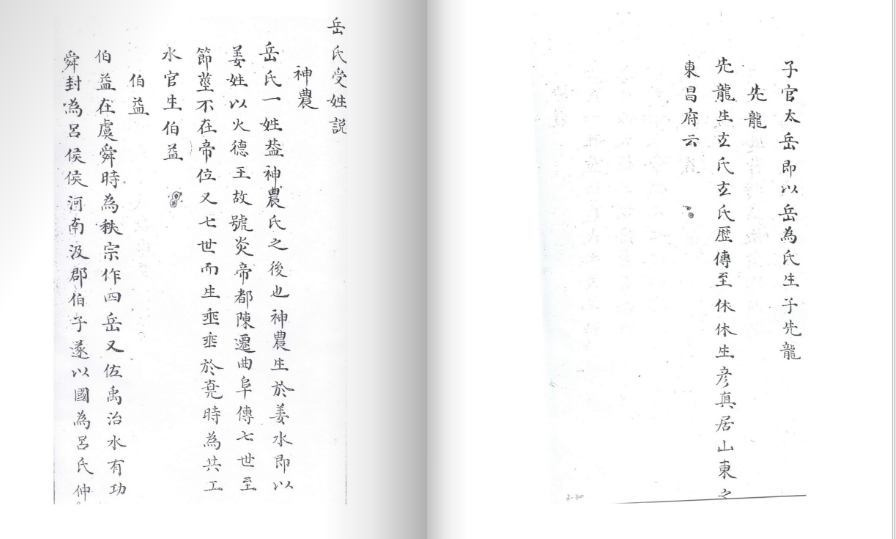 岳氏受姓説
神農
岳氏一姓葢神農氏之後也神農生於姜水即以
姜姓以火德王故號炎帝都陳遷曲阜傳七世至
節莖不在帝位又七世而生垂垂於堯時為共工
水官生伯益
伯益
伯益在虞舜時為秩宗作四岳又佐禹治水有功
舜封為呂侯侯河南汲郡伯子遂以國為呂氏仲
子官太岳即以岳為氏生子先龍
先龍
先龍生玄氏玄氏歷傳至休休生彦真居山東之
東昌府云